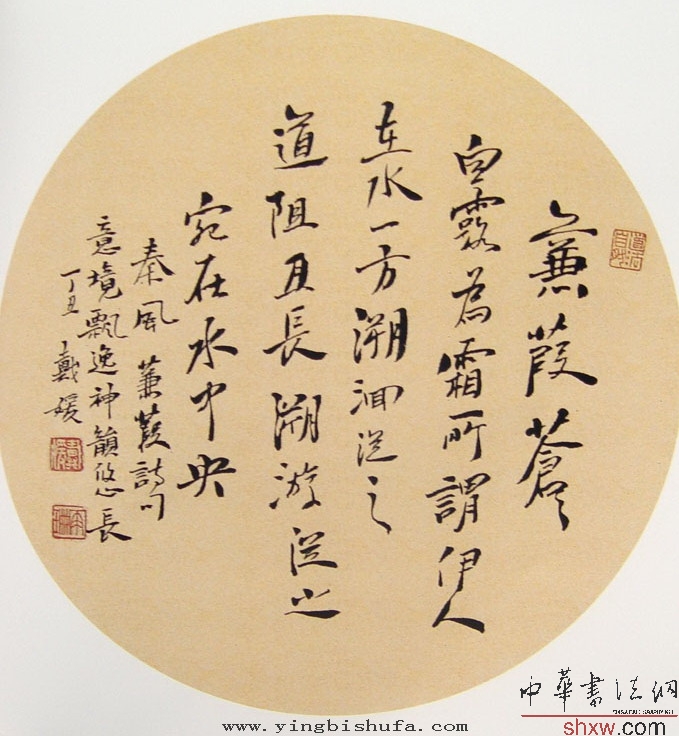 蒹葭蒼々
白露為霜所謂伊人
在水一方溯洄從之
道阻且長溯游從之
宛在水中央
秦風蒹葭詩句
意境飄逸神韻悠長
丁丑戴媛
道法自然
中華書法網
shxw.com
www.yingbishufa.com